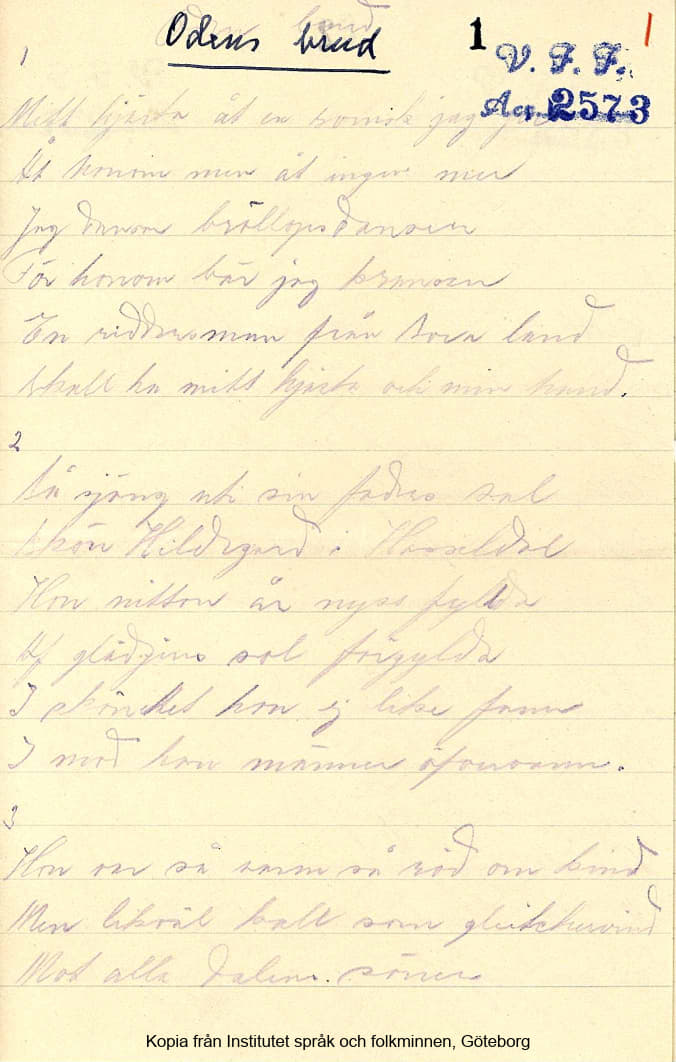 Odens brud
1
1
V. F. F.
Acc. 2573
1
Mitt hjärta åt en jag
Åt honom men åt ingen mer
Jag dansar bröllopsdansen
För honom bär jag kransen
En riddersman från land
Skall ha mitt hjärta och min hand.
2
Så sjöng uti sin faders sal
Skön Hildegard i Hasseldal
Hon nitton år nyss fyllda
Af glädjens sol förgyllda
I skönhet hon ej like fann
I mod hon männen öfvervann.
3
Hon var så varm så röd om kind
Men likväl kall som
Mot alla dalens söner
Kopia från Institutet språk och folkminnen, Göteborg